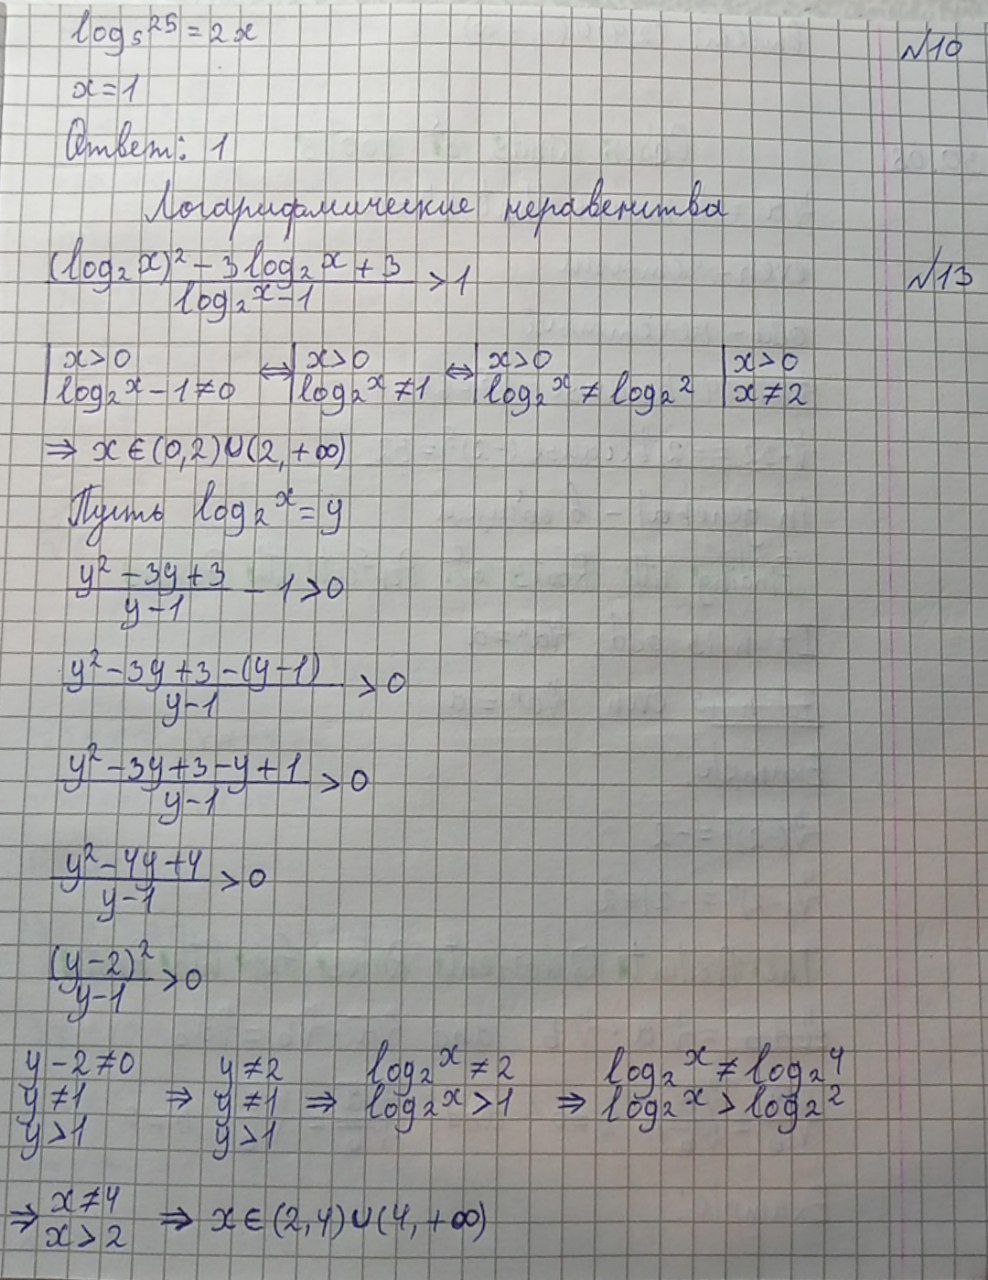 log₅25 = 2x
№10
x = 1
Ответ: 1
Логарифмические неравенства
((log₂x)² - 3log₂x + 3)/(log₂x - 1) > 1
№13
| x > 0 ; log₂x - 1 ≠ 0 ⇔ | x > 0 ; log₂x ≠ 1 ⇔ | x > 0 ; log₂x ≠ log₂2 | x > 0 ; x ≠ 2
⇒ x ∈ (0, 2) ∪ (2, +∞)
Пусть log₂x = y
(y² - 3y + 3)/(y - 1) - 1 > 0
(y² - 3y + 3 - (y - 1))/(y - 1) > 0
(y² - 3y + 3 - y + 1)/(y - 1) > 0
(y² - 4y + 4)/(y - 1) > 0
(y - 2)²/(y - 1) > 0
y - 2 ≠ 0 y ≠ 2 log₂x ≠ 2 log₂x ≠ log₂4
y ≠ 1 ⇒ y ≠ 1 ⇒ log₂x > 1 ⇒ log₂x > log₂2
y > 1 y > 1
⇒ x ≠ 4 ; x > 2 ⇒ x ∈ (2, 4) ∪ (4, +∞)